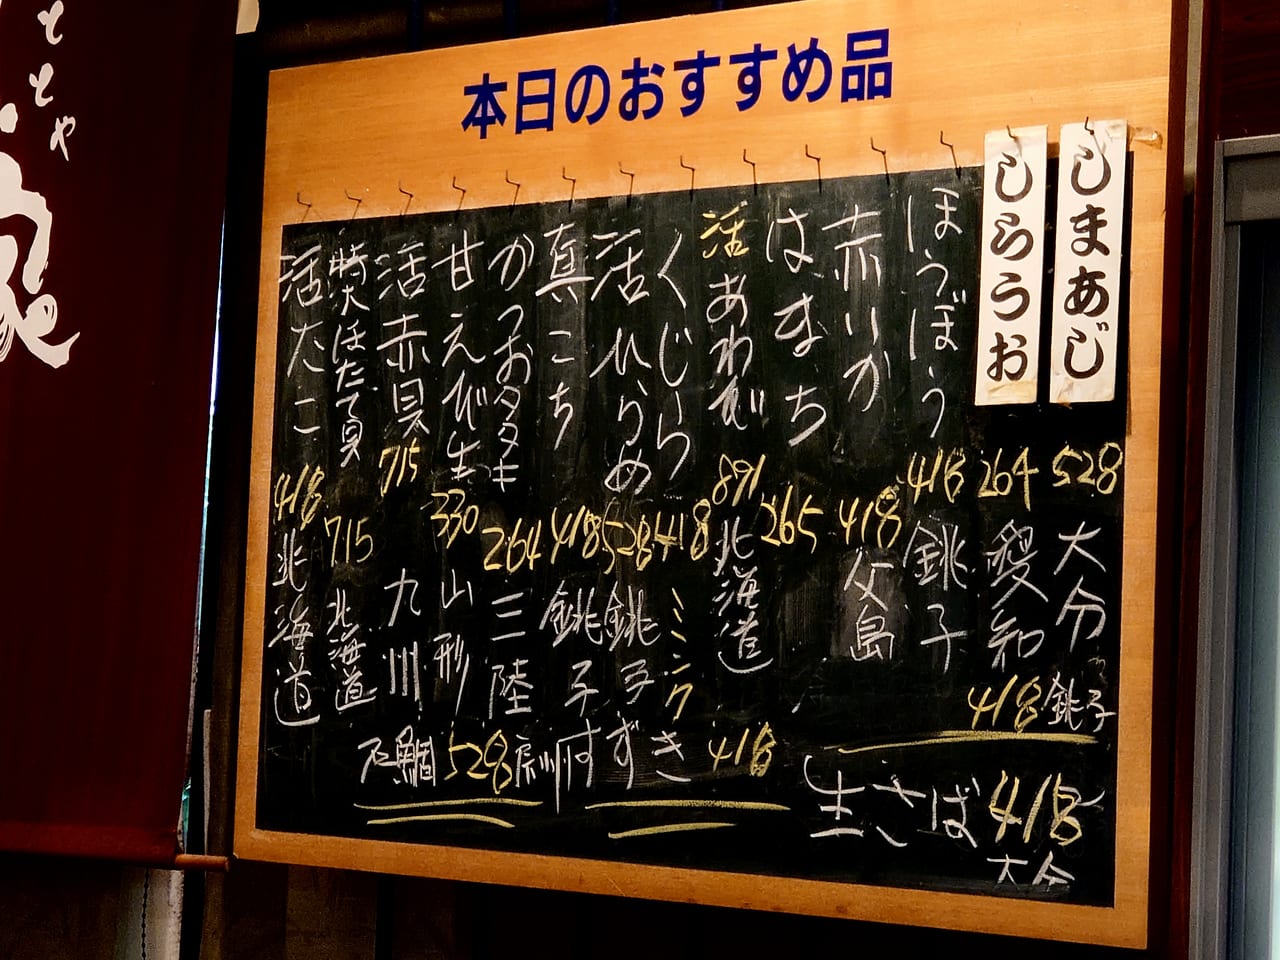 本日のおすすめ品
しまあじ 528 大分
しらうお 264 愛知
ほうぼう 418 銚子
赤いか 418 父島
はまち 265
活あわび 891 北海道
くじら 418 ミンク
活ひらめ 528 銚子
真こち 418 銚子
かつおタタキ 264 三陸
甘えび生 330 山形
活赤貝 715 九川
特大ほたて貝 715 北海道
活たこ 418 北海道
418 銚子
生さば 418 大分
すずき 418
石鯛 528 房州
ととや